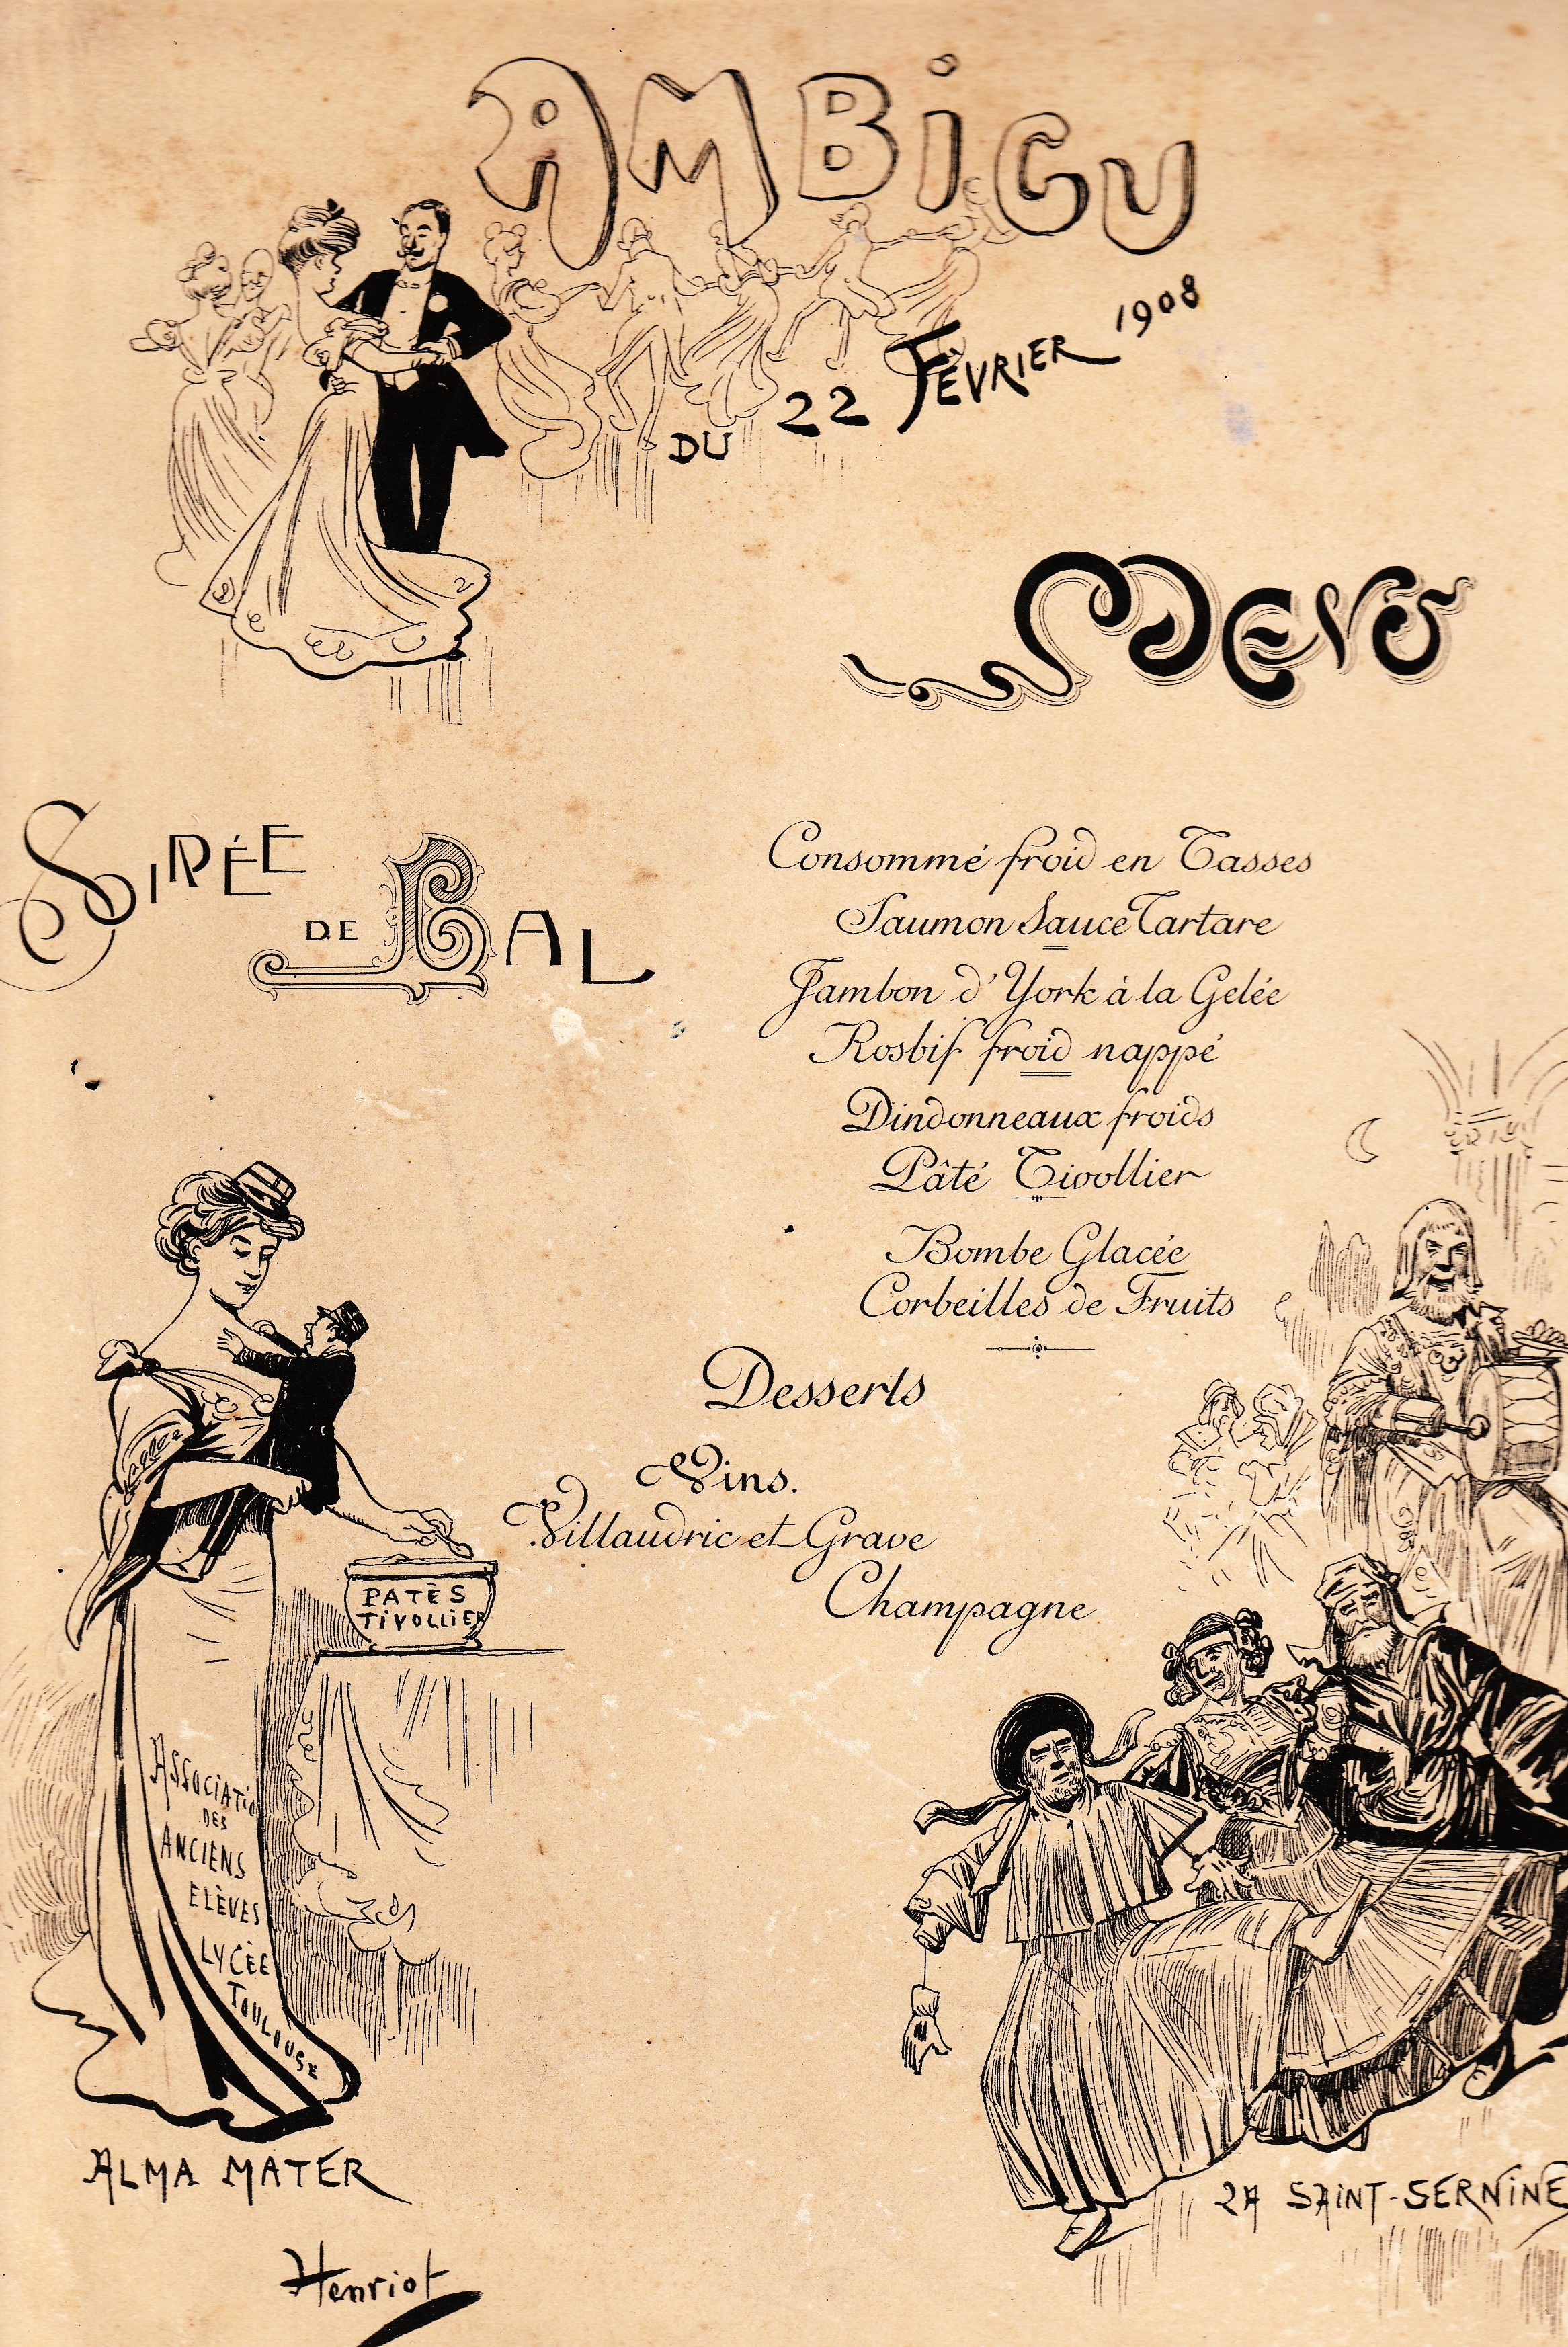 AMBIGU
DU 22 FÉVRIER 1908
MENU
SOIRÉE
DE BAL
Consommé froid en Tasses
Saumon Sauce Tartare
Jambon d'York à la Gelée
Rosbif froid nappé
Dindonneaux froids
Pâté Tivollier
Bombe Glacée
Corbeilles de Fruits
Desserts
Vins.
Villaudric et Grave
Champagne
PATÈS
TIVOLLIER
ASSOCIATIO
DES
ANCIENS
ELÈVES
LYCÈE
TOULOUSE
ALMA MATER
LA SAINT-SERNINE
Henriot